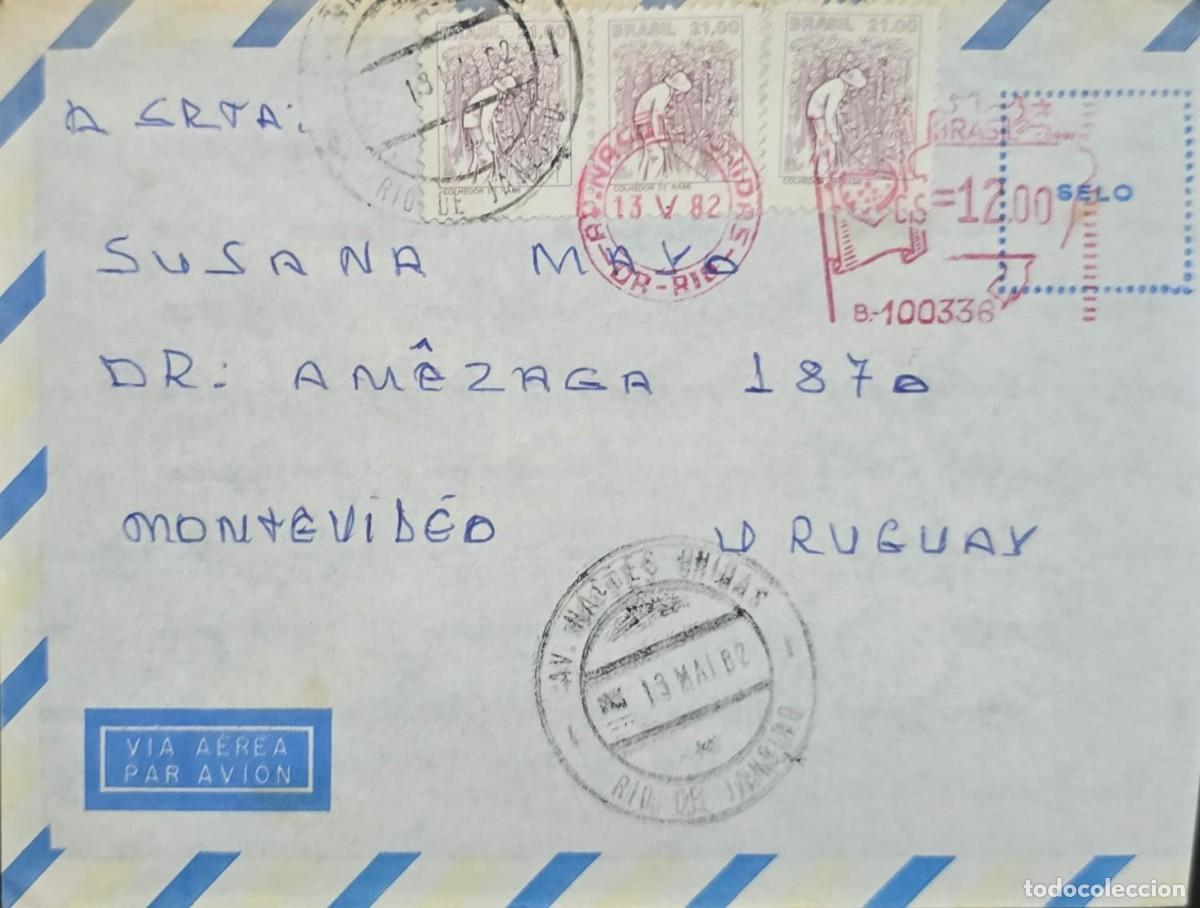 BRASIL 21.00
BRASIL 21.00
BRASIL 21.00
COLHEDOR DE RAMI
COLHEDOR DE RAMI
COLHEDOR DE RAMI
RIO DE JANEIRO
13 V 82
DR-RIO
BRASIL
=12.00
B.-100336
SELO
A SRTA:
SUSANA MAYO
DR: AMÊZAGA 1870
MONTEVIDÉO URUGUAY
AV. NAÇÕES UNIDAS
13 MAI 82
RIO DE JANEIRO
VIA AÉREA
PAR AVION
todocoleccion